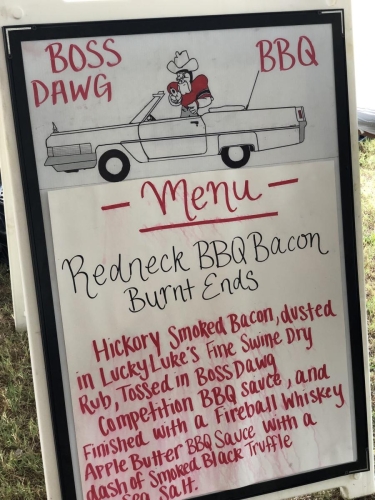 BOSS BBQ
DAWG
- Menu -
Redneck BBQ Bacon
Burnt Ends
Hickory Smoked Bacon, dusted
in Lucky Luke's Fine Swine Dry
Rub, Tossed in Boss Dawg
Competition BBQ sauce, and
Finished with a Fireball Whiskey
Apple Butter BBQ Sauce with a
dash of Smoked Black Truffle
Sea Salt.